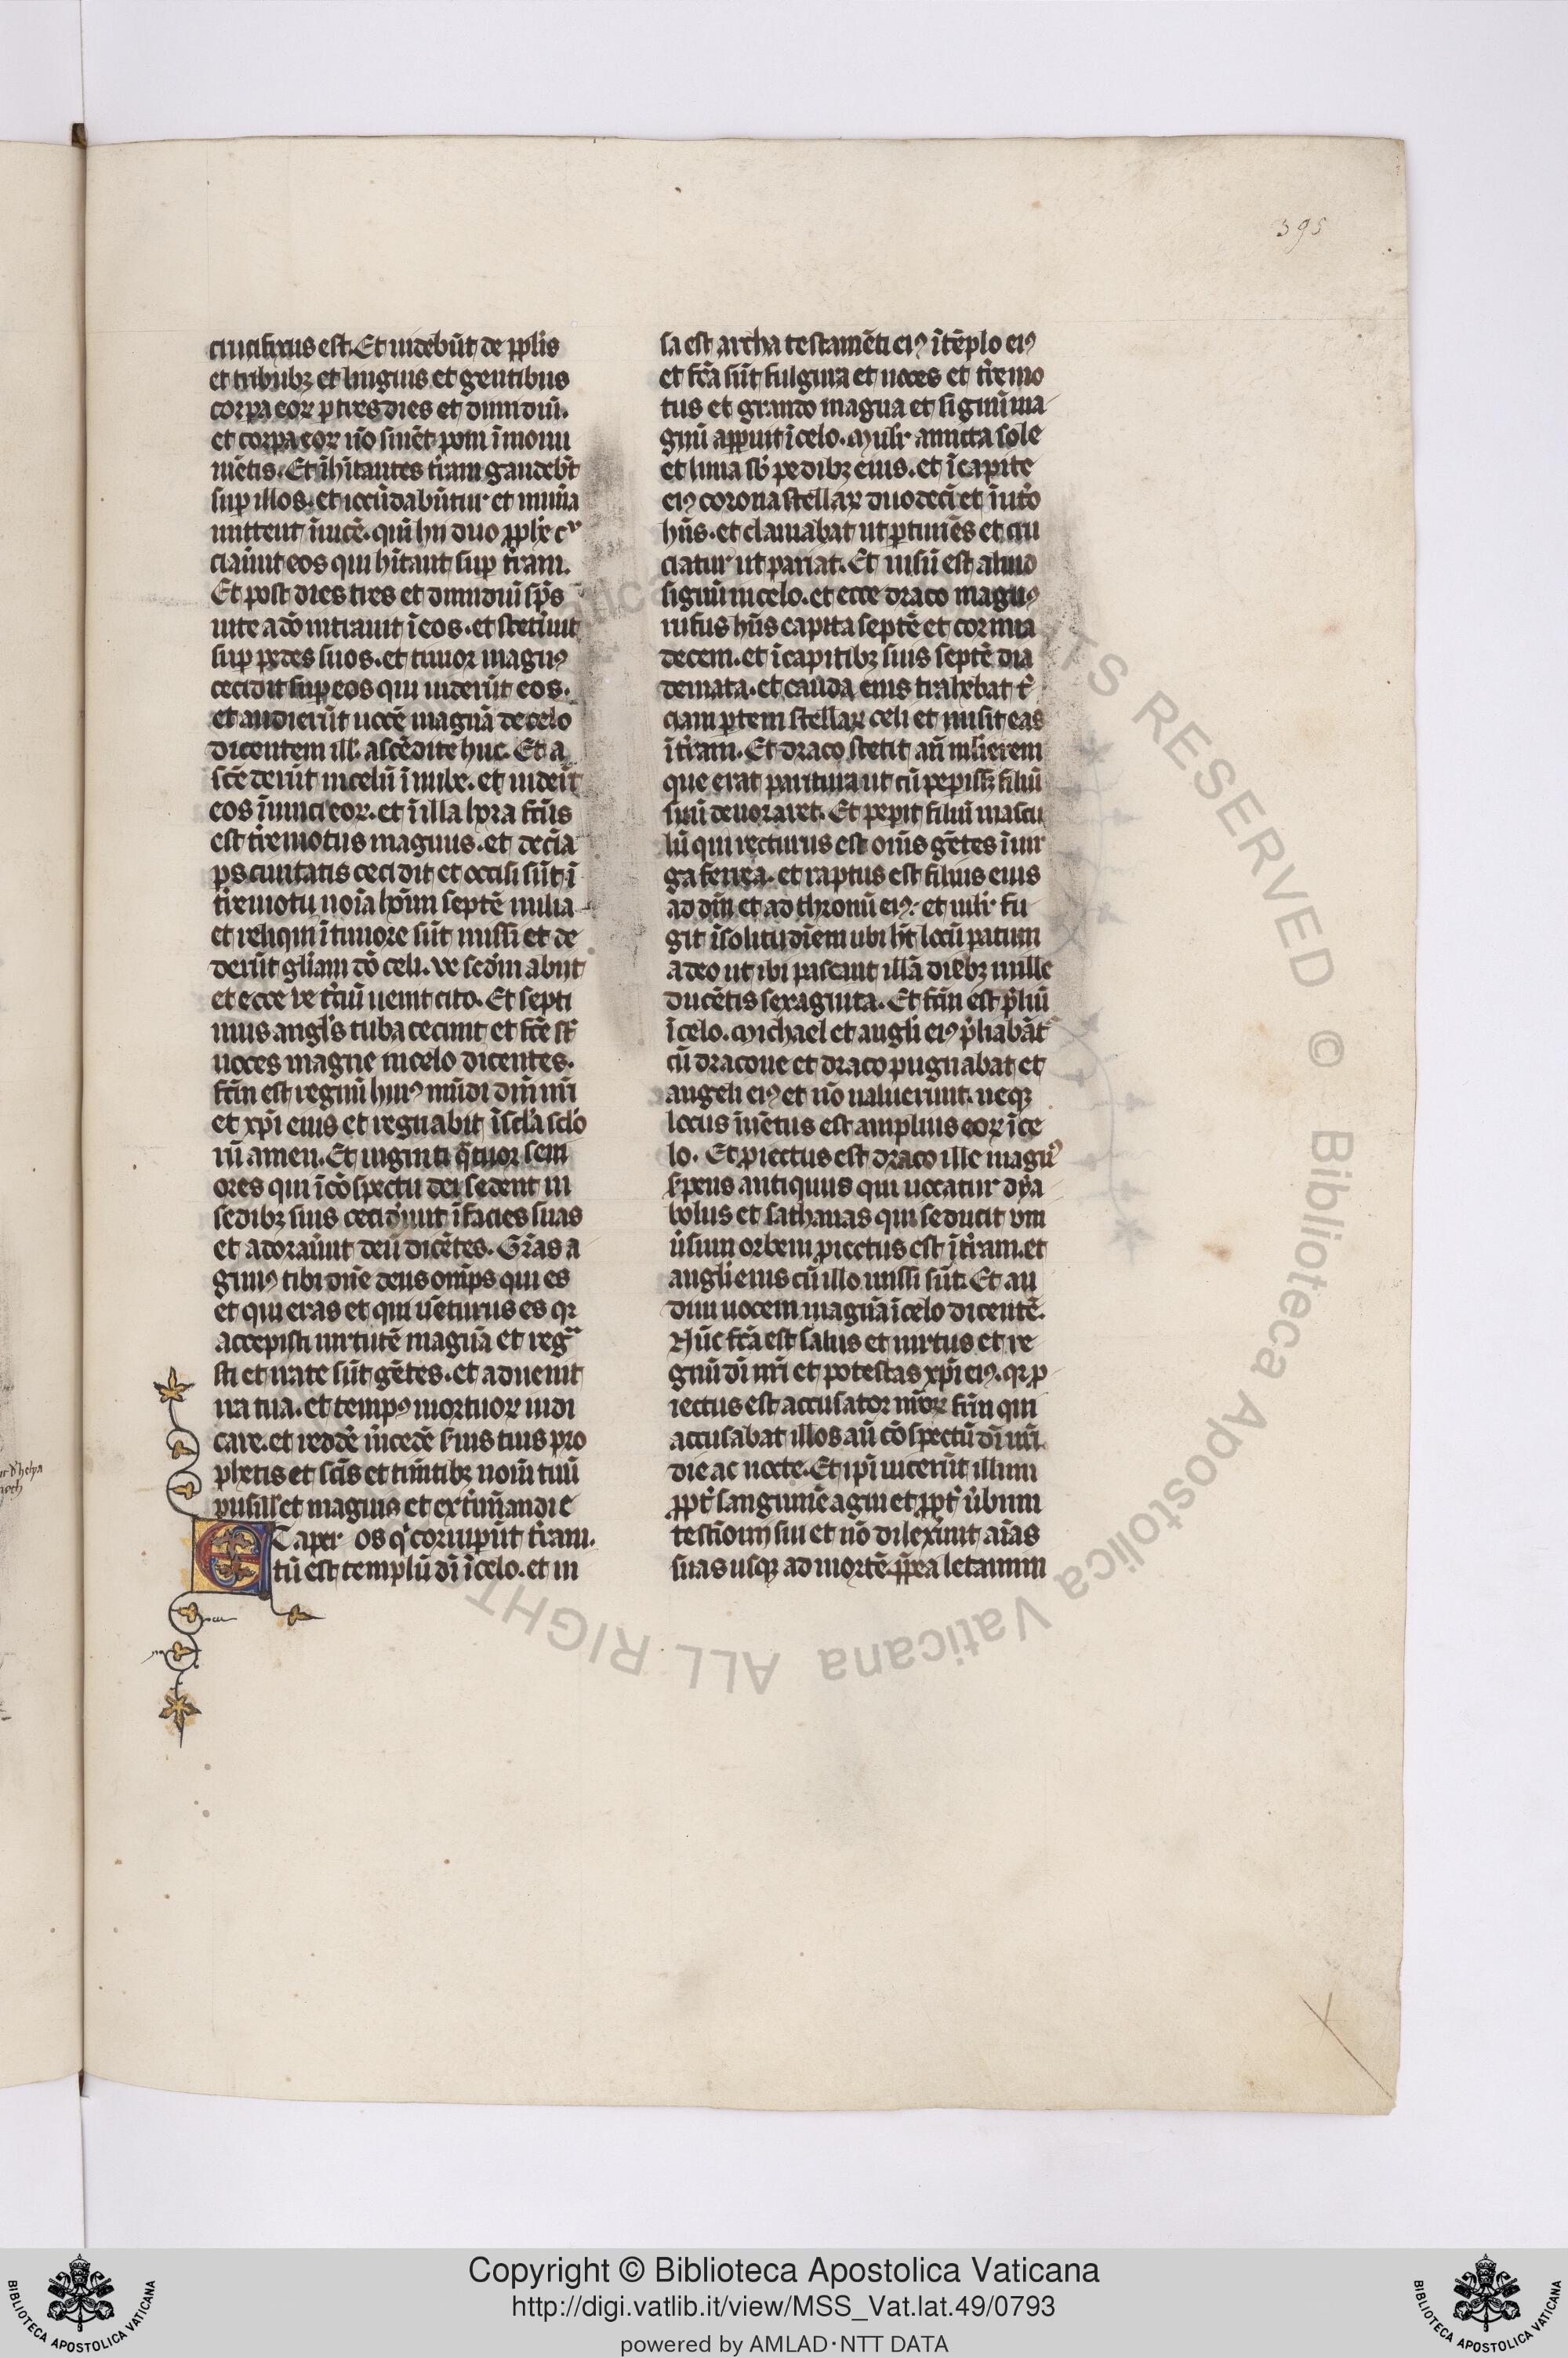 395
crucifixus est. Et uidebūt de pplis
et tribubꝫ et linguis et gentibus
corpa eoꝝ p tres dies et dimidiū.
et corpa eoꝝ nō sinēt poni ī monu
mētis. Et īhītantes t̄ram gaudebt̄
sup illos. et iocūdabūtur et mun̄a
mittent īuicē. qm̄ hii duo pph̄e c͛
ciauīnt eos qui hītant sup t̄ram.
Et post dies tres et dimidiū sp̄s
uite a dō intrauit ī eos. et stet̄unt
sup pedes suos. et timor magnꝰ
cecidit sup eos qui uiderūt eos.
et audierūt uocē magnā de celo
dicentem ill. ascēdite huc. Et a
scēderūt in celū ī nube. et uider̄t
eos īimici eoꝝ. et ī illa hora fc̄us
est t̄remotus magnus. et decīa
ps ciuitatis cecidit et occisi sūt ī
t̄remotu noīa hoīm septē milia
et reliqui ī timore sūt missi et de
derūt gl̄iam dō celi. ve secdm abiit
et ecce ve t̄ciū ueniet cito. Et septi
mus angl̄s tuba cecinit et fc̄e st̄
uoces magne in celo dicentes.
fc̄m est regnū huiꝰ mūdi dn̄i nr̄i
et xp̄i eius et regnabit ī scl̄a scl̄o
rū amen. Et uiginti q̄tuor seni
ores qui ī cōspectu dei sedent in
sedibꝫ suis cecid̄unt ī facies suas
et adorauīnt deū dicētes. Gr̄as a
gimꝰ tibi dn̄e deus om̄ps qui es
et qui eras et qui uēturus es qꝛ
accepisti uirtutē magnā et regͣ
sti et irate sūt gētes. et aduenit
ira tua. et tempꝰ mortuoꝝ iudi
care. et redde m̄cedē s̄uis tuis pro
phetis et sc̄is et tim̄tibꝫ nom̄ tuū
pusill̓ et magnis et ext̄minandi e
Et aper os q̇ corruperūt t̄ram.
tū est templū dī ī celo. et ui
sa est archa testamēti eiꝰ ī tēplo eiꝰ
et fc̄a sūt fulgura et uoces et t̄remo
tus et grando magna et signū ma
gnū appuit ī celo. Mulr̄ amicta sole
et luna sb̄ pedibꝫ eius. et ī capite
eiꝰ corona stellaꝝ duodecī et ī ut̄o
hn̄s. et clamabat ut pturiēs et cru
ciatur ut pariat. Et uisū est aliud
signū in celo. et ecce draco magnꝰ
rufus hn̄s capita septē et cornua
decem. et ī capitibꝫ suis septē dia
demata. et cauda eius trahebat t̄
ciam ptem stellaꝝ celi et misit eas
ī t̄ram. Et draco stetit an̄ mulierem
que erat paritura ut cū pepissꝫ filiū
suū deuoraret. Et pepit filiū mascu
lū qui recturus est om̄s gētes ī uir
ga ferrea. et raptus est filius eius
ad dm̄ et ad thronū eiꝰ. et mulr̄ fu
git ī solitudīem ubi ht̄ locū patum
a deo ut ibi pascant illā diebꝫ mille
ducētis sexaginta. Et fc̄m est p̄liū
ī celo. Michael et angli eiꝰ p̄liabāt
cū dracone et draco pugnabat et
angeli eiꝰ et nō ualuerunt. neqꝫ
locus īuētus est amplius eoꝝ ī ce
lo. Et piectus est draco ille magnꝰ
s̄pens antiquus qui uocatur dya
bolus et sathanas qui seducit vni
ūsum orbem piectus est ī t̄ram. et
angli eius cū illo missi sūt. Et au
diui uocem magnā ī celo dicentē.
Nūc fc̄a est salus et uirtus et re
gnū dī nr̄i et potestas xp̄i eiꝰ. qꝛ p
iectus est accusator nr̄oꝝ fr̄m qui
accusabat illos an̄ cōspectū dī nr̄i.
die ac nocte. Et ip̄i uicerūt illum
ppt̄ sanguinē agni et ppt̄ ūbum
testiom̄ sui et nō dilexīunt aīas
suas usqꝫ ad mortē. pp̄ea letamin
Copyright © Biblioteca Apostolica Vaticana
http://digi.vatlib.it/view/MSS_Vat.lat.49/0793
powered by AMLAD·NTT DATA
BIBLIOTECA APOSTOLICA VATICANA
BIBLIOTECA APOSTOLICA VATICANA
© Biblioteca Apostolica Vaticana ALL RIGHTS RESERVED